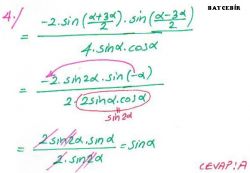 BATCEBİR
4./
= -2.sin((α+3α)/2).sin((α-3α)/2) / 4.sinα.cosα
= -2.sin2α.sin(-α) / 2.2sinα.cosα
sin2α
= 2sin2α.sinα / 2.sin2α = sinα
CEVAP:A